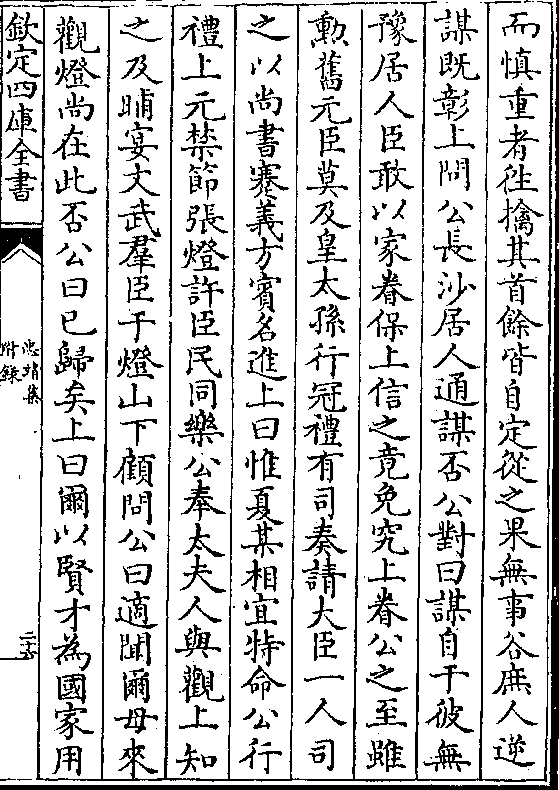 而慎重者徃擒其首餘皆自定從之果無事谷庶人逆
謀既彰上問公長沙居人通謀否公對曰謀自干彼無
豫居人臣敢以家眷保上信之竟免究上眷公之至雖
勲舊元臣莫及皇太孫行冠禮有司奏請大臣一人司
之以尚書蹇義方賓名進上曰惟夏某相宜特命公行
禮上元禁節張燈許臣民同樂公奉太夫人與觀上知
之及晡宴文武羣臣于燈山下顧問公曰適聞爾母來
觀燈尚在此否公曰已歸矣上曰爾以賢才為國家用
欽定四庫全書
忠靖集
附錄
二十六